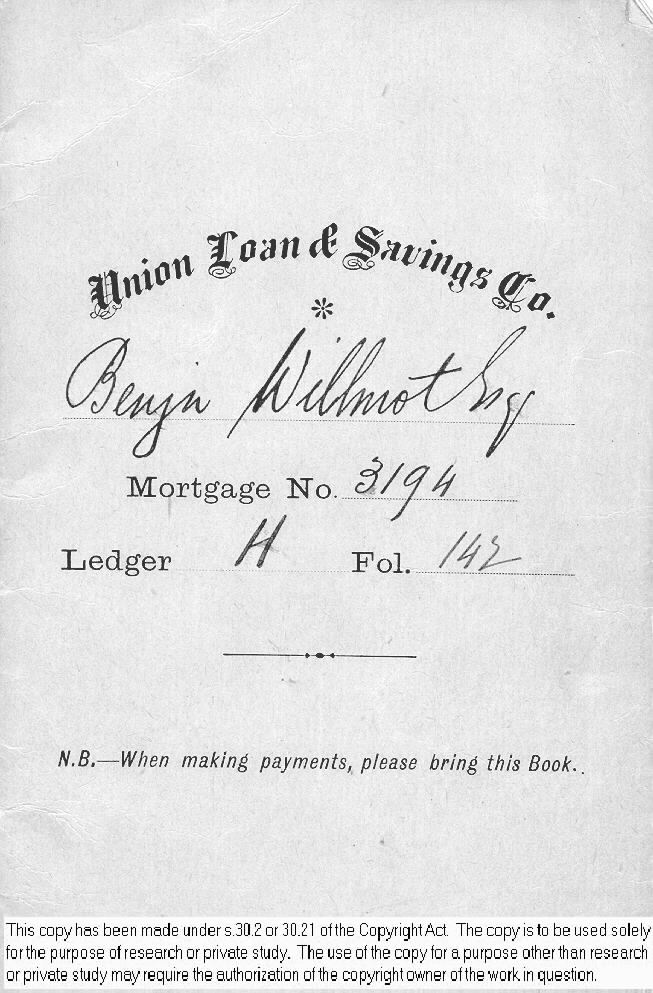 Union Loan & Savings Co.
*
Benjn Willmot Esq
Mortgage No. 3194
Ledger H Fol. 142
N.B.—When making payments, please bring this Book.
This copy has been made under s.30.2 or 30.21 of the Copyright Act. The copy is to be used solely
for the purpose of research or private study. The use of the copy for a purpose other than research
or private study may require the authorization of the copyright owner of the work in question.